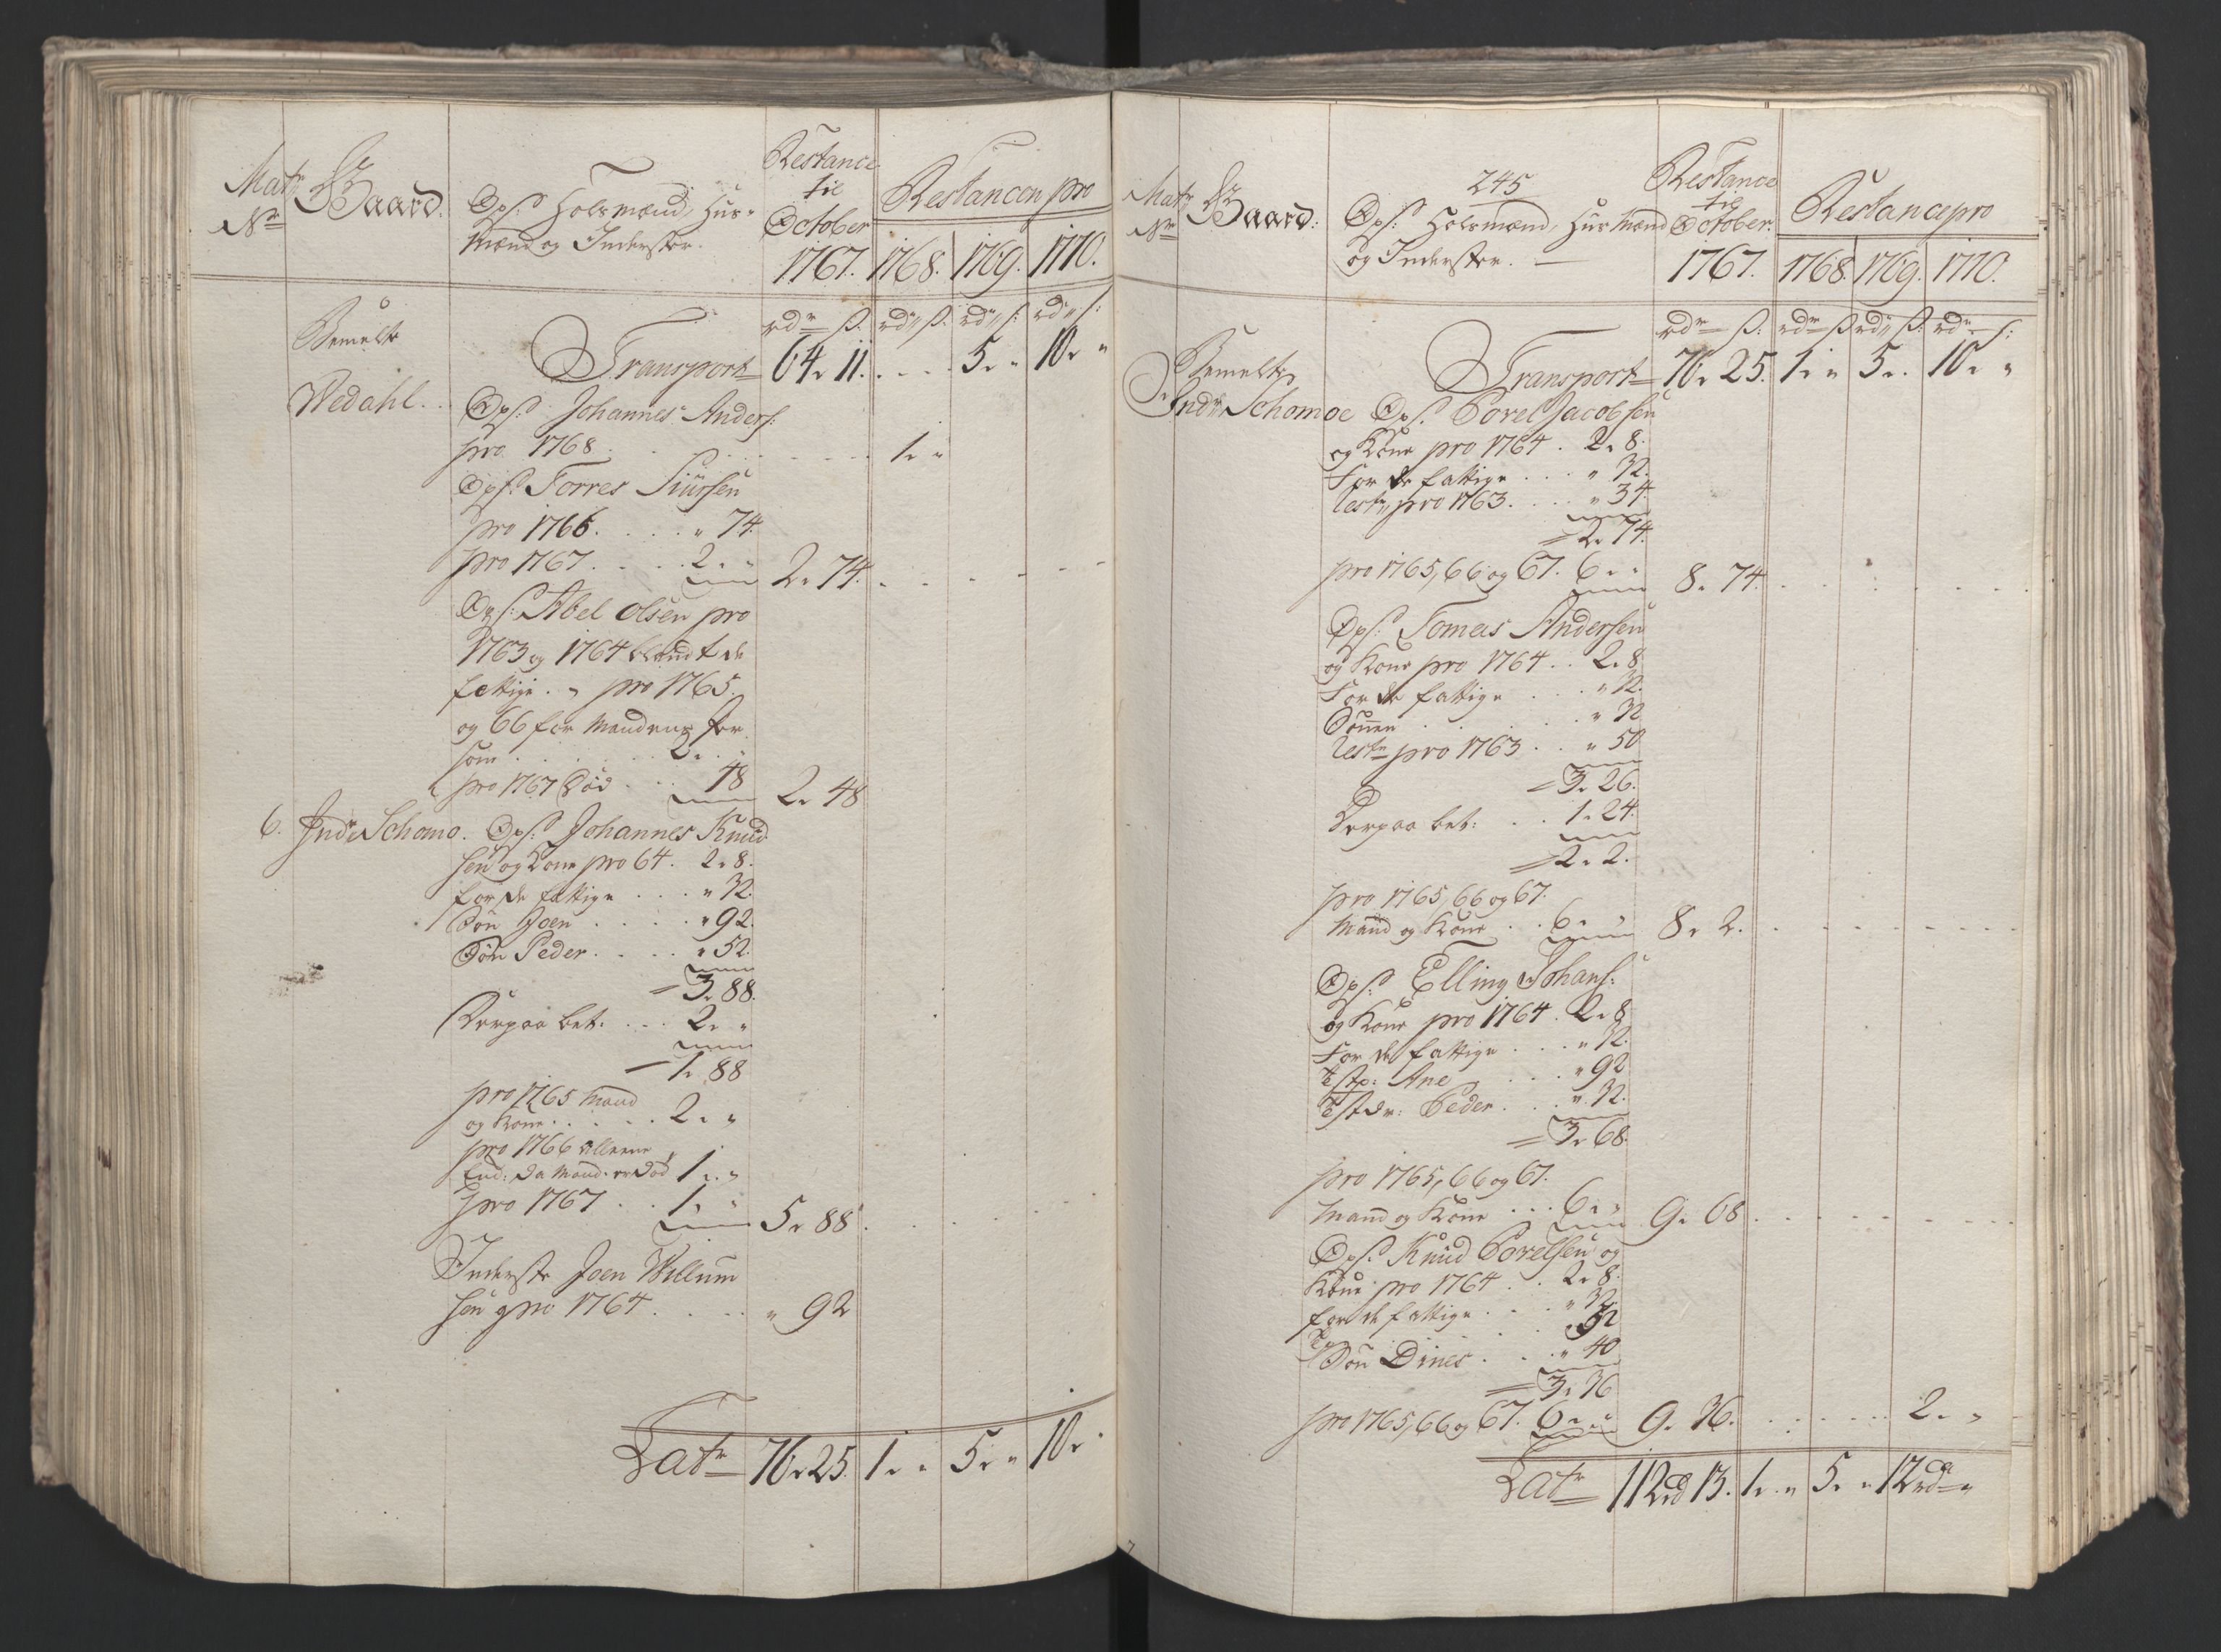 Matr
No
Gaard.
Ops: Holsmænd, Huus-
mænd og Inderster.
Restance
til
October
1767.
Restancen pro
1768. 1769. 1770.
rdr ß. rdr ß. rdr ß: rdr ß:
Bemelte
Wedahl.
Transport 64 " 11. . . . 5 " " 10 " "
Ops: Johannes Anders:
pro 1768 . . . . 1 " "
Ops: Torres Siursen
pro 1766. . . . " 74.
pro 1767. . . . 2 " " 2 " 74.
Ops: Abel Olsen pro
1763 og 1764 blandt de
fattige. " pro 1765.
og 66 for Manden
som . . . . 2 " "
pro 1767 Død . . 48 2 " 48
6. Indr Schomo. Ops: Johannes Knud
sen og Kone pro 64. 2 " 8.
for de fattige . . . " 32.
Søn Joen . . . . " 92.
Søn Peder. . . . " 52.
3 " 88.
Derpaa bet. . . . 2 " "
1 " 88
pro 1765 Mand
og Kone. . . . . 2 " "
pro 1766 alleene
da Mand. er Død 1 " "
pro 1767 . . 1 " " 5 " 88.
Inderste Joen Willum
sen pro 1764. . . . " 92
Latr 76 " 25. 1 " " 5 " " 10 "
245
Matr
No
Gaard:
Ops: Holsmænd, Huusmænd
og Inderster.
Restance
til
October:
1767.
Restance pro
1768. 1769. 1770.
rdr ß: rdr ß rdr ß: rdr ß:
Bemelte
Indr Schomoe
Transport 76 " 25. 1 " " 5 " . 10 " "
Ops: Povel Jacobsen
og Kone pro 1764 . 2 " 8.
For de fattige . . . " 32.
Rest pro 1763. . . " 34.
2 " 74.
pro 1765, 66 og 67. 6 " " 8 " 74.
Ops: Tomas Andersen
og Kone pro 1764 . . 2 " 8
For de fattige . . . " 32.
Sønnen . . . . " 32
Rest pro 1763 . . " 50
3 " 26.
Derpaa bet: . . 1 " 24.
2 " 2.
pro 1765, 66 og 67.
Mand og Kone . . 6 " " 8 " 2.
Ops: Elling Johans:
og Kone pro 1764 . 2 " 8
For de fattige . . . " 32.
Ane . . . " 92
Peder. . . " 32.
3 " 68.
pro 1765, 66 og 67.
Mand og Kone . . . 6 " " 9 " 68.
Ops: Knud Povelsen og
Kone pro 1764 . . 2 " 8.
for de fattige . . . " 32
52
Søn Dines . . . " 40
3 " 36
pro 1765, 66 og 67. 6 " " 9 " 36. . . . . 2 " "
Latr 112 rd 13. 1 " " 5 " " 12 rdr "